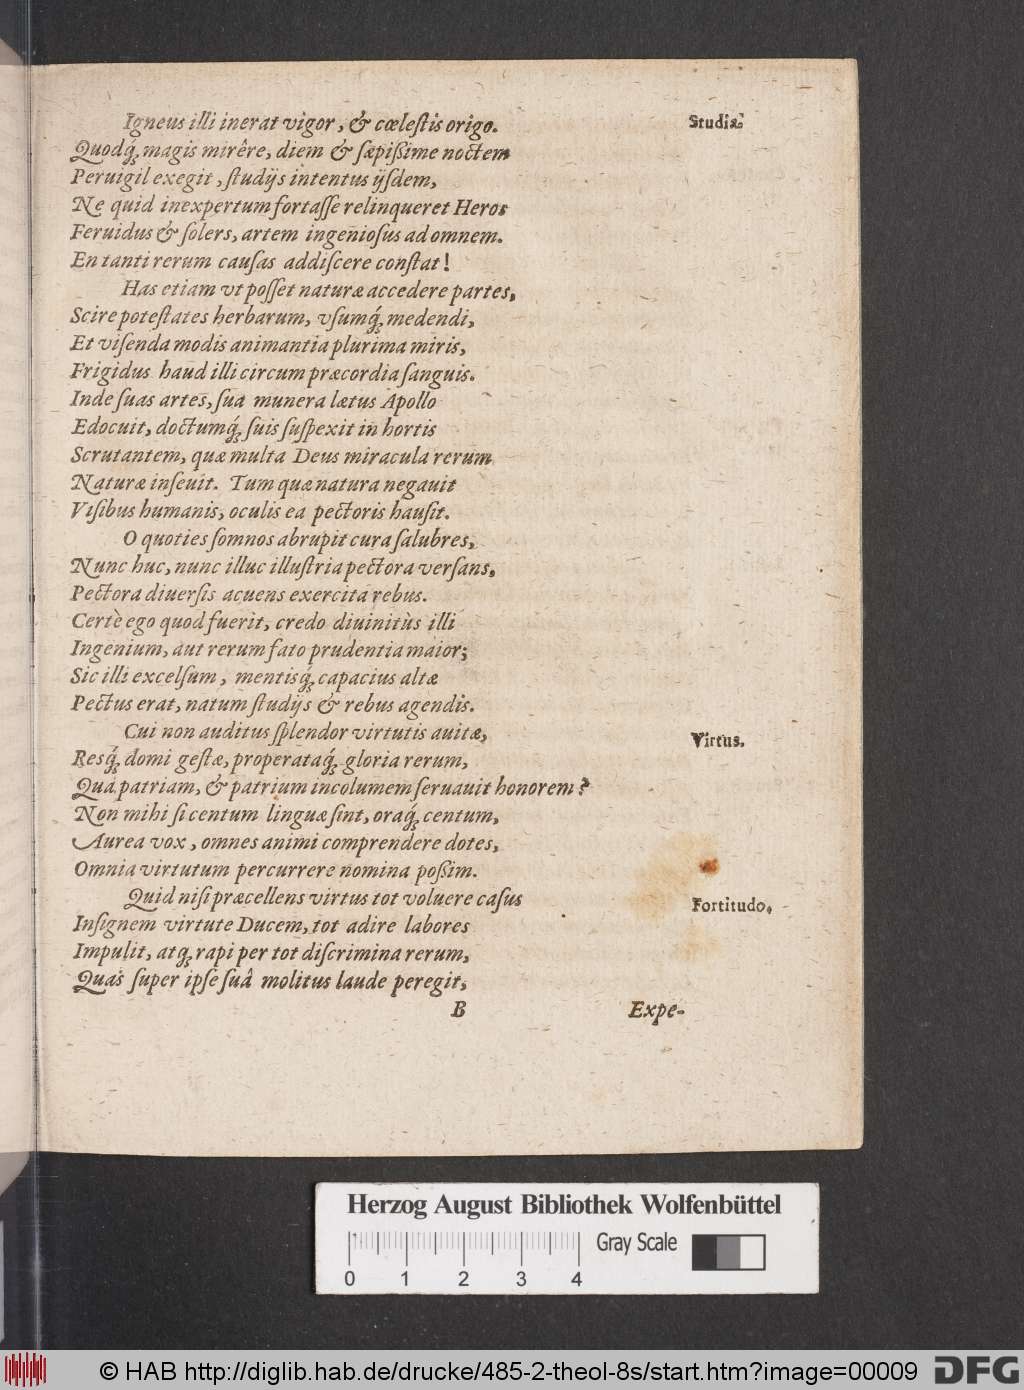 Igneus illi inerat vigor, & cœleſtis origo.
Studia.
Quodq́ꝫ magis mirêre, diem & ſæpißime noctem
Peruigil exegit, ſtudijs intentus ijſdem,
Ne quid inexpertum fortaſſe relinqueret Heros
Feruidus & ſolers, artem ingenioſus ad omnem.
En tanti rerum cauſas addiſcere conſtat!
Has etiam vt poſſet naturæ accedere partes,
Scire poteſtates herbarum, vſumq́ꝫ medendi,
Et viſenda modis animantia plurima miris,
Frigidus haud illi circum præcordia ſanguis.
Inde ſuas artes, ſua munera lætus Apollo
Edocuit, doctumq́ꝫ ſuis ſuſpexit in hortis
Scrutantem, quæ multa Deus miracula rerum
Naturæ inſeuit. Tum quæ natura negauit
Viſibus humanis, oculis ea pectoris hauſit.
O quoties ſomnos abrupit cura ſalubres,
Nunc huc, nunc illuc illuſtria pectora verſans,
Pectora diuerſis acuens exercita rebus.
Certè ego quod fuerit, credo diuinitùs illi
Ingenium, aut rerum fato prudentia maior;
Sic illi excelſum, mentisq́ꝫ capacius altæ
Pectus erat, natum ſtudijs & rebus agendis.
Cui non auditus ſplendor virtutis auitæ,
Virtus.
Resq́ꝫ domi geſtæ, properataq́ꝫ gloria rerum,
Quâ patriam, & patrium incolumem ſeruauit honorem?
Non mihi ſi centum linguæ ſint, oraq́ꝫ centum,
Aurea vox, omnes animi comprendere dotes,
Omnia virtutum percurrere nomina poßim.
Quid niſi præcellens virtus tot voluere caſus
Fortitudo.
Inſignem virtute Ducem, tot adire labores
Impulit, atqꝫ rapi per tot diſcrimina rerum,
Quas ſuper ipſe ſuâ molitus laude peregit,
B
Expe-
Herzog August Bibliothek Wolfenbüttel
Gray Scale
0 1 2 3 4
© HAB http://diglib.hab.de/drucke/485-2-theol-8s/start.htm?image=00009
DFG